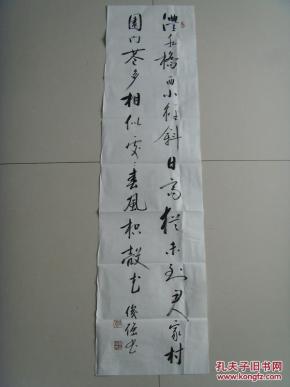 澧水桥西小径斜日高犹未到君家村
园门巷多相似处处春风枳壳花
俊强书
孔夫子旧书网